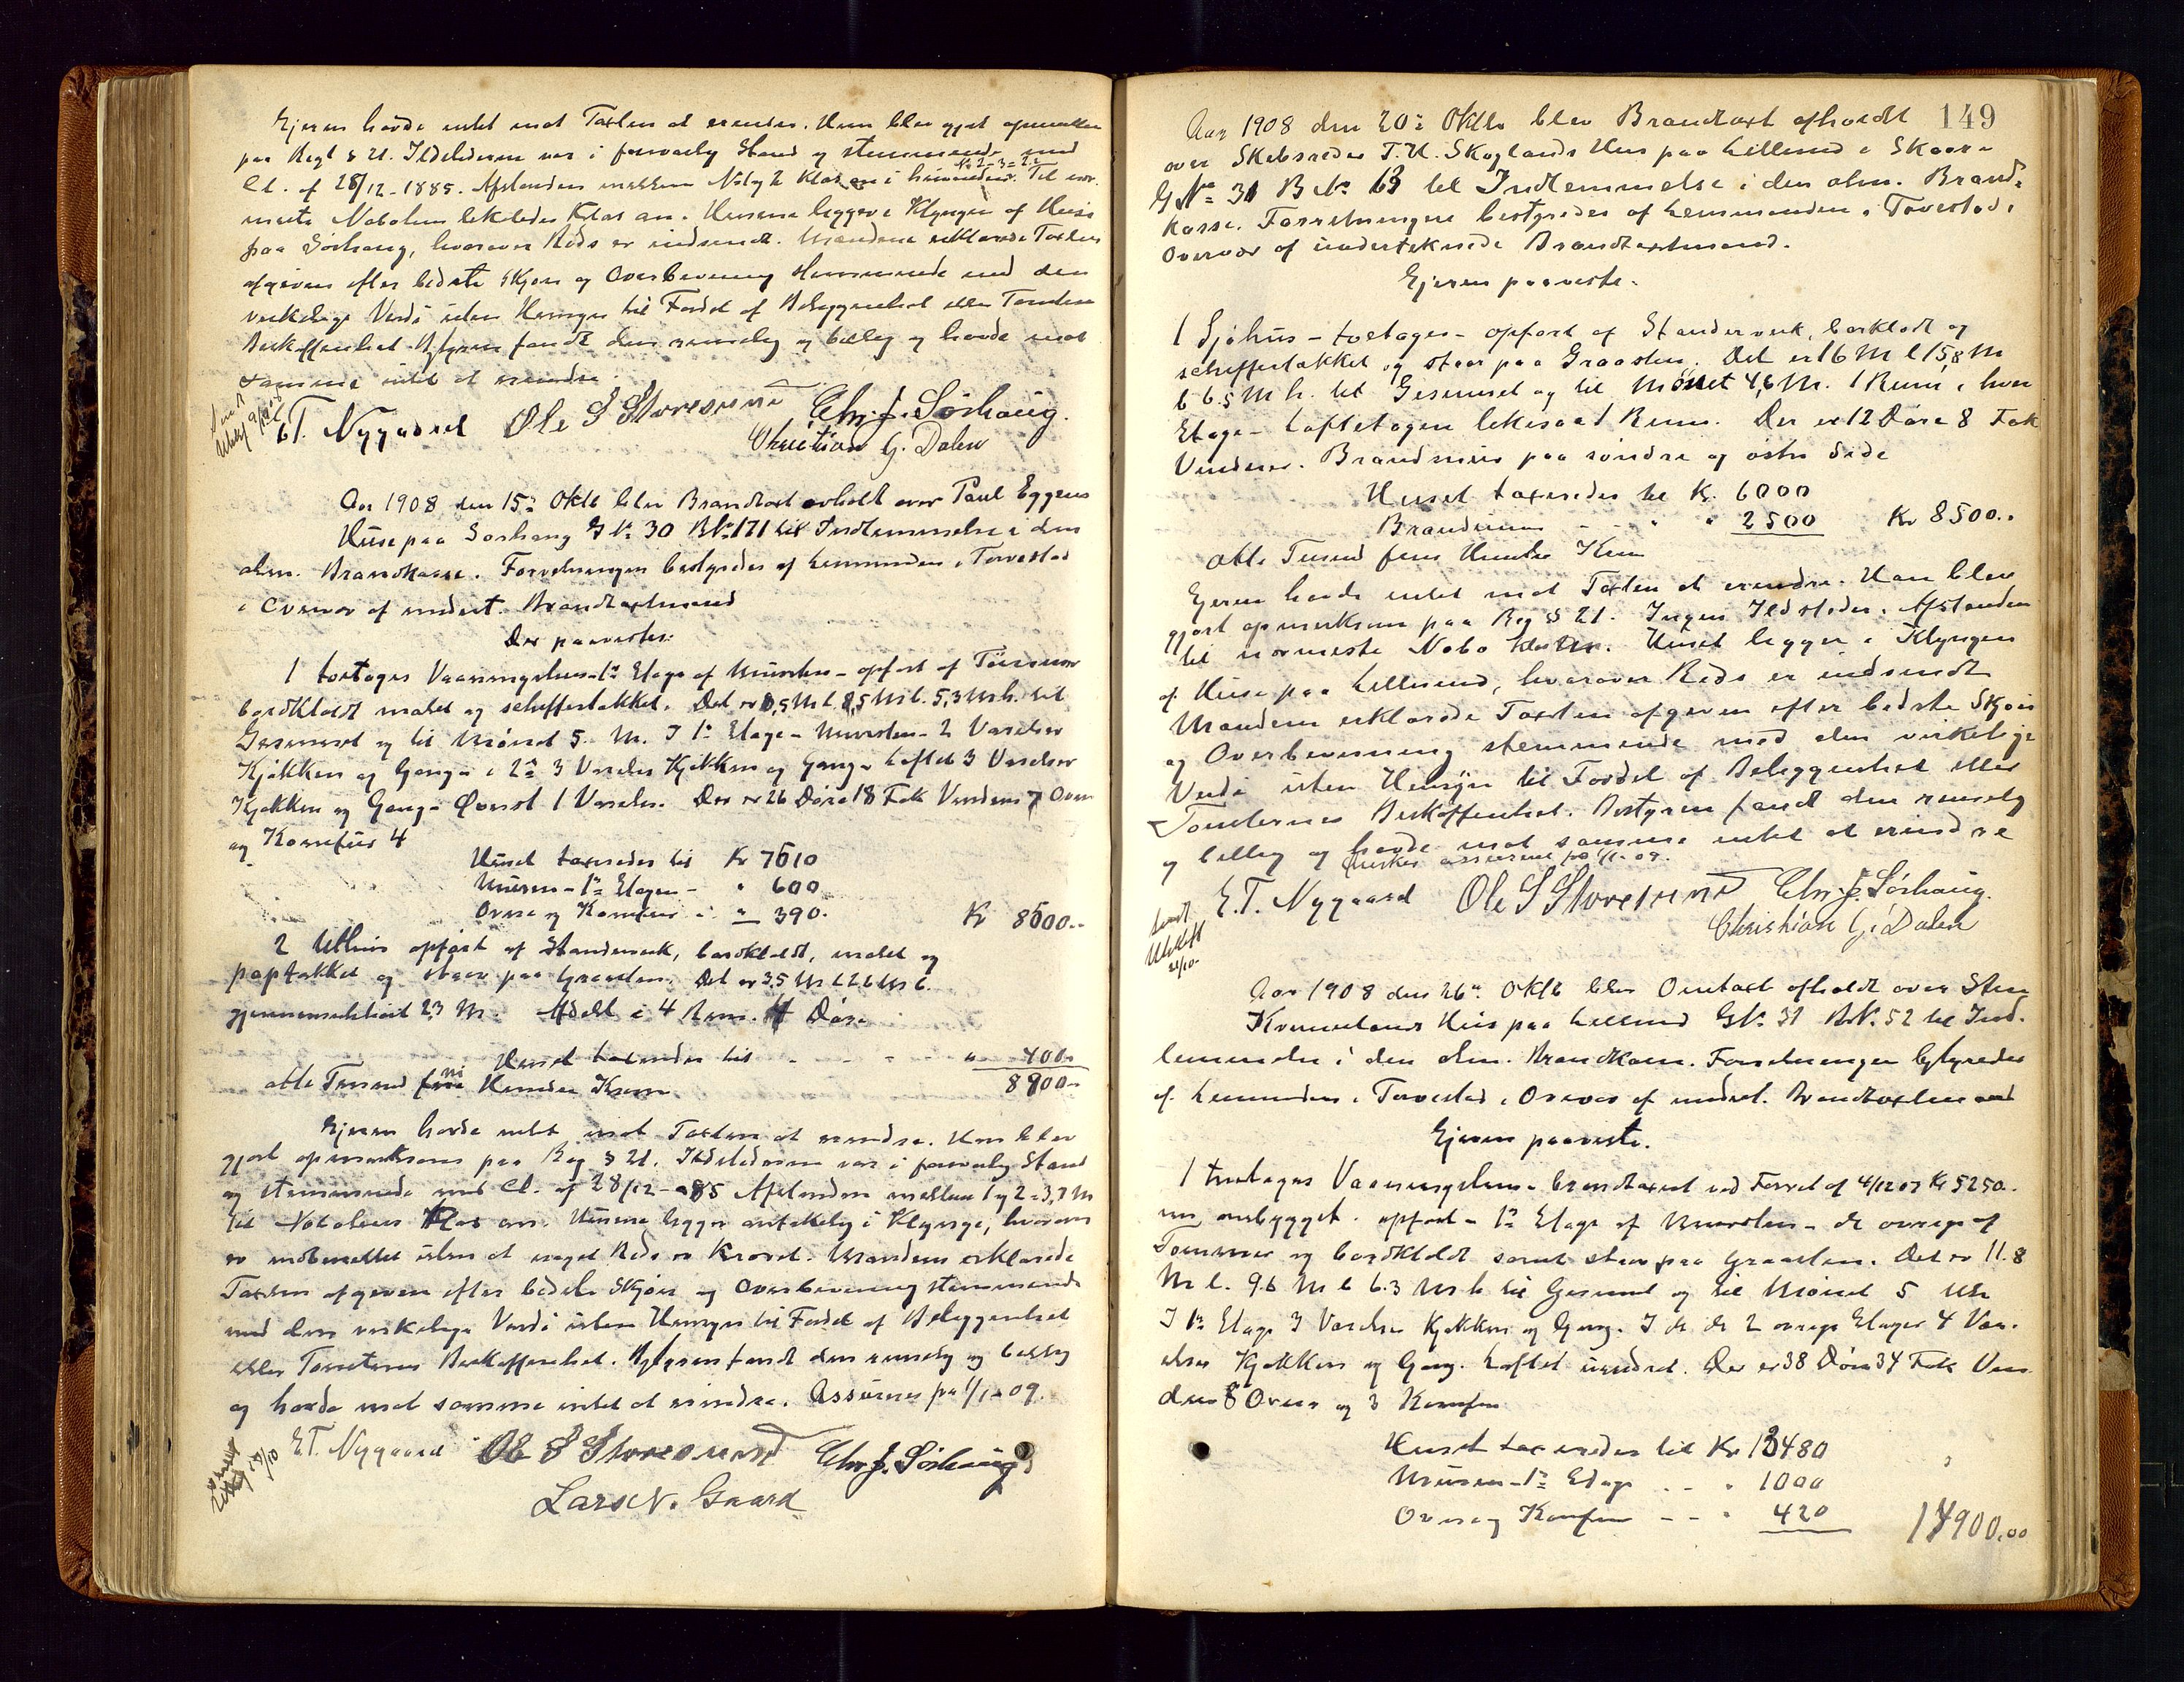 Ejeren havde intet mod Taxten at erindre. Han blev gjort opmærksom
paa Regl § 21. Ildstederne var i forsvarlig Stand og stemmende med
Cl. af 28/12-1885. Afstanden mellem No 1 og 2
No 2-3=
Til nær-
meste Nabohus
Husene ligger i Klynge af Huse
paa Sørhaug, hvorover Rids er indsendt. Mændene erklærede Taxten
afgiven efter bedste Skjøn og Overbevisning stemmende med den
verkelige Verdi uden Hensyn til Fordel af Beliggenhed eller Tomtens
Beskaffenhed. Bestyren fandt den rimelig og billig og havde mod
samme intet at erindre.
E.T. Nygaard Ole S Storesund Chr. J. Sørhaug.
Christian G. Dalen
Aar 1908 den 15de Oktb blev Brandtaxt avholdt over Paul Eggens
Huse paa Sørhaug G No 30 B No 171 til Indlemmelse i den
alm. Brandkasse. Forretningen bestyredes af Lensmanden i Torvestad
i Overvær af undert. Brandtaxtmænd
Der paavistes:
1 toetages Vaaningshus 1ste Etage af Mursten - opført af Tømmer
bordklædt malet og skiffertækket. Det er 10,5 M l. 8,5 M b. 5,3 M h. til
Gesimset og til Mønet 5 M. I 1ste Etage - Mursten - 2 Værelser
Kjøkken og Gang - i 2den 3 Værelser Kjøkken og Gang - Loftet 3 Værelser
Kjøkken og Gang - Øverst 1 Værelse. Der er 26 Døre 18 Fak Vinduer 7 Ovne
og Komfur 4
Huset taxeredes til Kr 7610
Muren - 1ste Etagen - " 600
Ovne og Komfur - " 390. Kr 8600..
2 Uthus opført af Standerverk, bordklædt, malet og
paptækket og staar paa Graasten. Det er 3,5 M l 2,6 M b.
gjennemsnitlig 2,3 M. Afdelt i 4 Rum. 4 Døre
Huset taxeredes til - - - - " 400..
otte Tusind ni Hundre Kroner 8900..
Ejeren havde intet mod Taxten at erindre. Han blev
gjort opmærksom paa Reg § 21. Ildstederne var i forsvarlig Stand
og stemmende med Cl. af 28/12-85 Afstanden mellem 1 og 2 = 3,7 M
til Nabohus
Husene ligger
i Klynge, hvorom
er indberettet uden at noget Rids er krævet. Mændene erklærede
Taxten afgiven efter bedste Skjøn og Overbevisning stemmende
med den verkelige Verdi uden Hensyn til Fordel af Beliggenhed
eller Tomternes Beskaffenhed. Bestyren fandt den rimelig og billig
og havde mod samme intet at erindre. Assureres fra 1/1-09.
E.T. Nygaard Ole S Storesund Chr. J. Sørhaug
Lars N. Gaard
149
Aar 1908 den 20de Oktb blev Brandtaxt afholdt
over Skibsreder T.H. Skoglands Hus paa Lillesund i Skaare
G No 31 B No 63 til Indlemmelse i den alm. Brand-
kasse. Forretningen bestyredes af Lensmanden i Torvestad i
Overvær af undertegnede Brandtaxtmænd.
Ejeren paaviste.
1 Sjøhus - toetages - opført af Standerverk, bordklædt og
skiffertækket og staar paa Graasten. Det er 16 M l 15,8 M
b 6.5 M h. til Gesimset og til Mønet 4,6 M. 1 Rum i hver
Etage - Loftetagen likesaa 1 Rum. Der er 12 Døre 8 Fak
Vinduer. Brandmur paa søndre og østre Side
Huset taxeredes til Kr. 6000
Brandmuren - - " " 2500 Kr 8500..
otte Tusind fem Hundre Kroner
Ejeren havde intet mod Taxten at erindre. Han blev
gjort opmerksom paa Reg § 21. Ingen Ildsteder. Afstanden
til nærmeste Nabo
Huset ligger i Klyngen
af Huse paa Lillesund, hvorover Rids er indsendt
Mændene erklærede Taxten afgiven efter bedste Skjøn
og Overbevisning stemmende med den virkelige
Verdi uden Hensyn til Fordel af Beliggenhed eller
Tomternes Beskaffenhed. Bestyren fandt den rimelig
og billig og havde mod samme intet at erindre
Ønskes assureret fra 1/1-09.
E.T. Nygaard Ole S Storesund Chr. J. Sørhaug.
Christian G. Dalen
Aar 1908 den 26de Oktb blev Omtaxt afholdt over
Hus paa Lillesund G No 31 B No. 52 til Ind-
lemmelse i den alm. Brandkasse. Forretningen bestyredes
af Lensmanden i Torvestad i Overvær af undert. Brandtaxtmænd
Ejeren paaviste.
Vaaningshus - brandtaxeret ved Forret af 4/12 07 Kr 5250.
nu ombygget. opført - 1ste Etage af Mursten - de øvrige af
Tømmer og bordklædt samt staar paa Graasten. Det er 11.8
M l. 9.6 M b 6.3 M h til Gesimset og til Mønet 5 M
I 1ste Etage 3 Værelser Kjøkken og Gang. I de 2 øvrige Etager 4 Vær-
elser Kjøkken og Gang. Loftet uindret. Der er 38 Døre 34 Fak Vin-
duer 8 Ovne og 3 Komfur
Huset taxeredes til Kr 13480
Muren - 1ste Etage - - " 1000
Ovne og Komfur - - " 420 14900.00